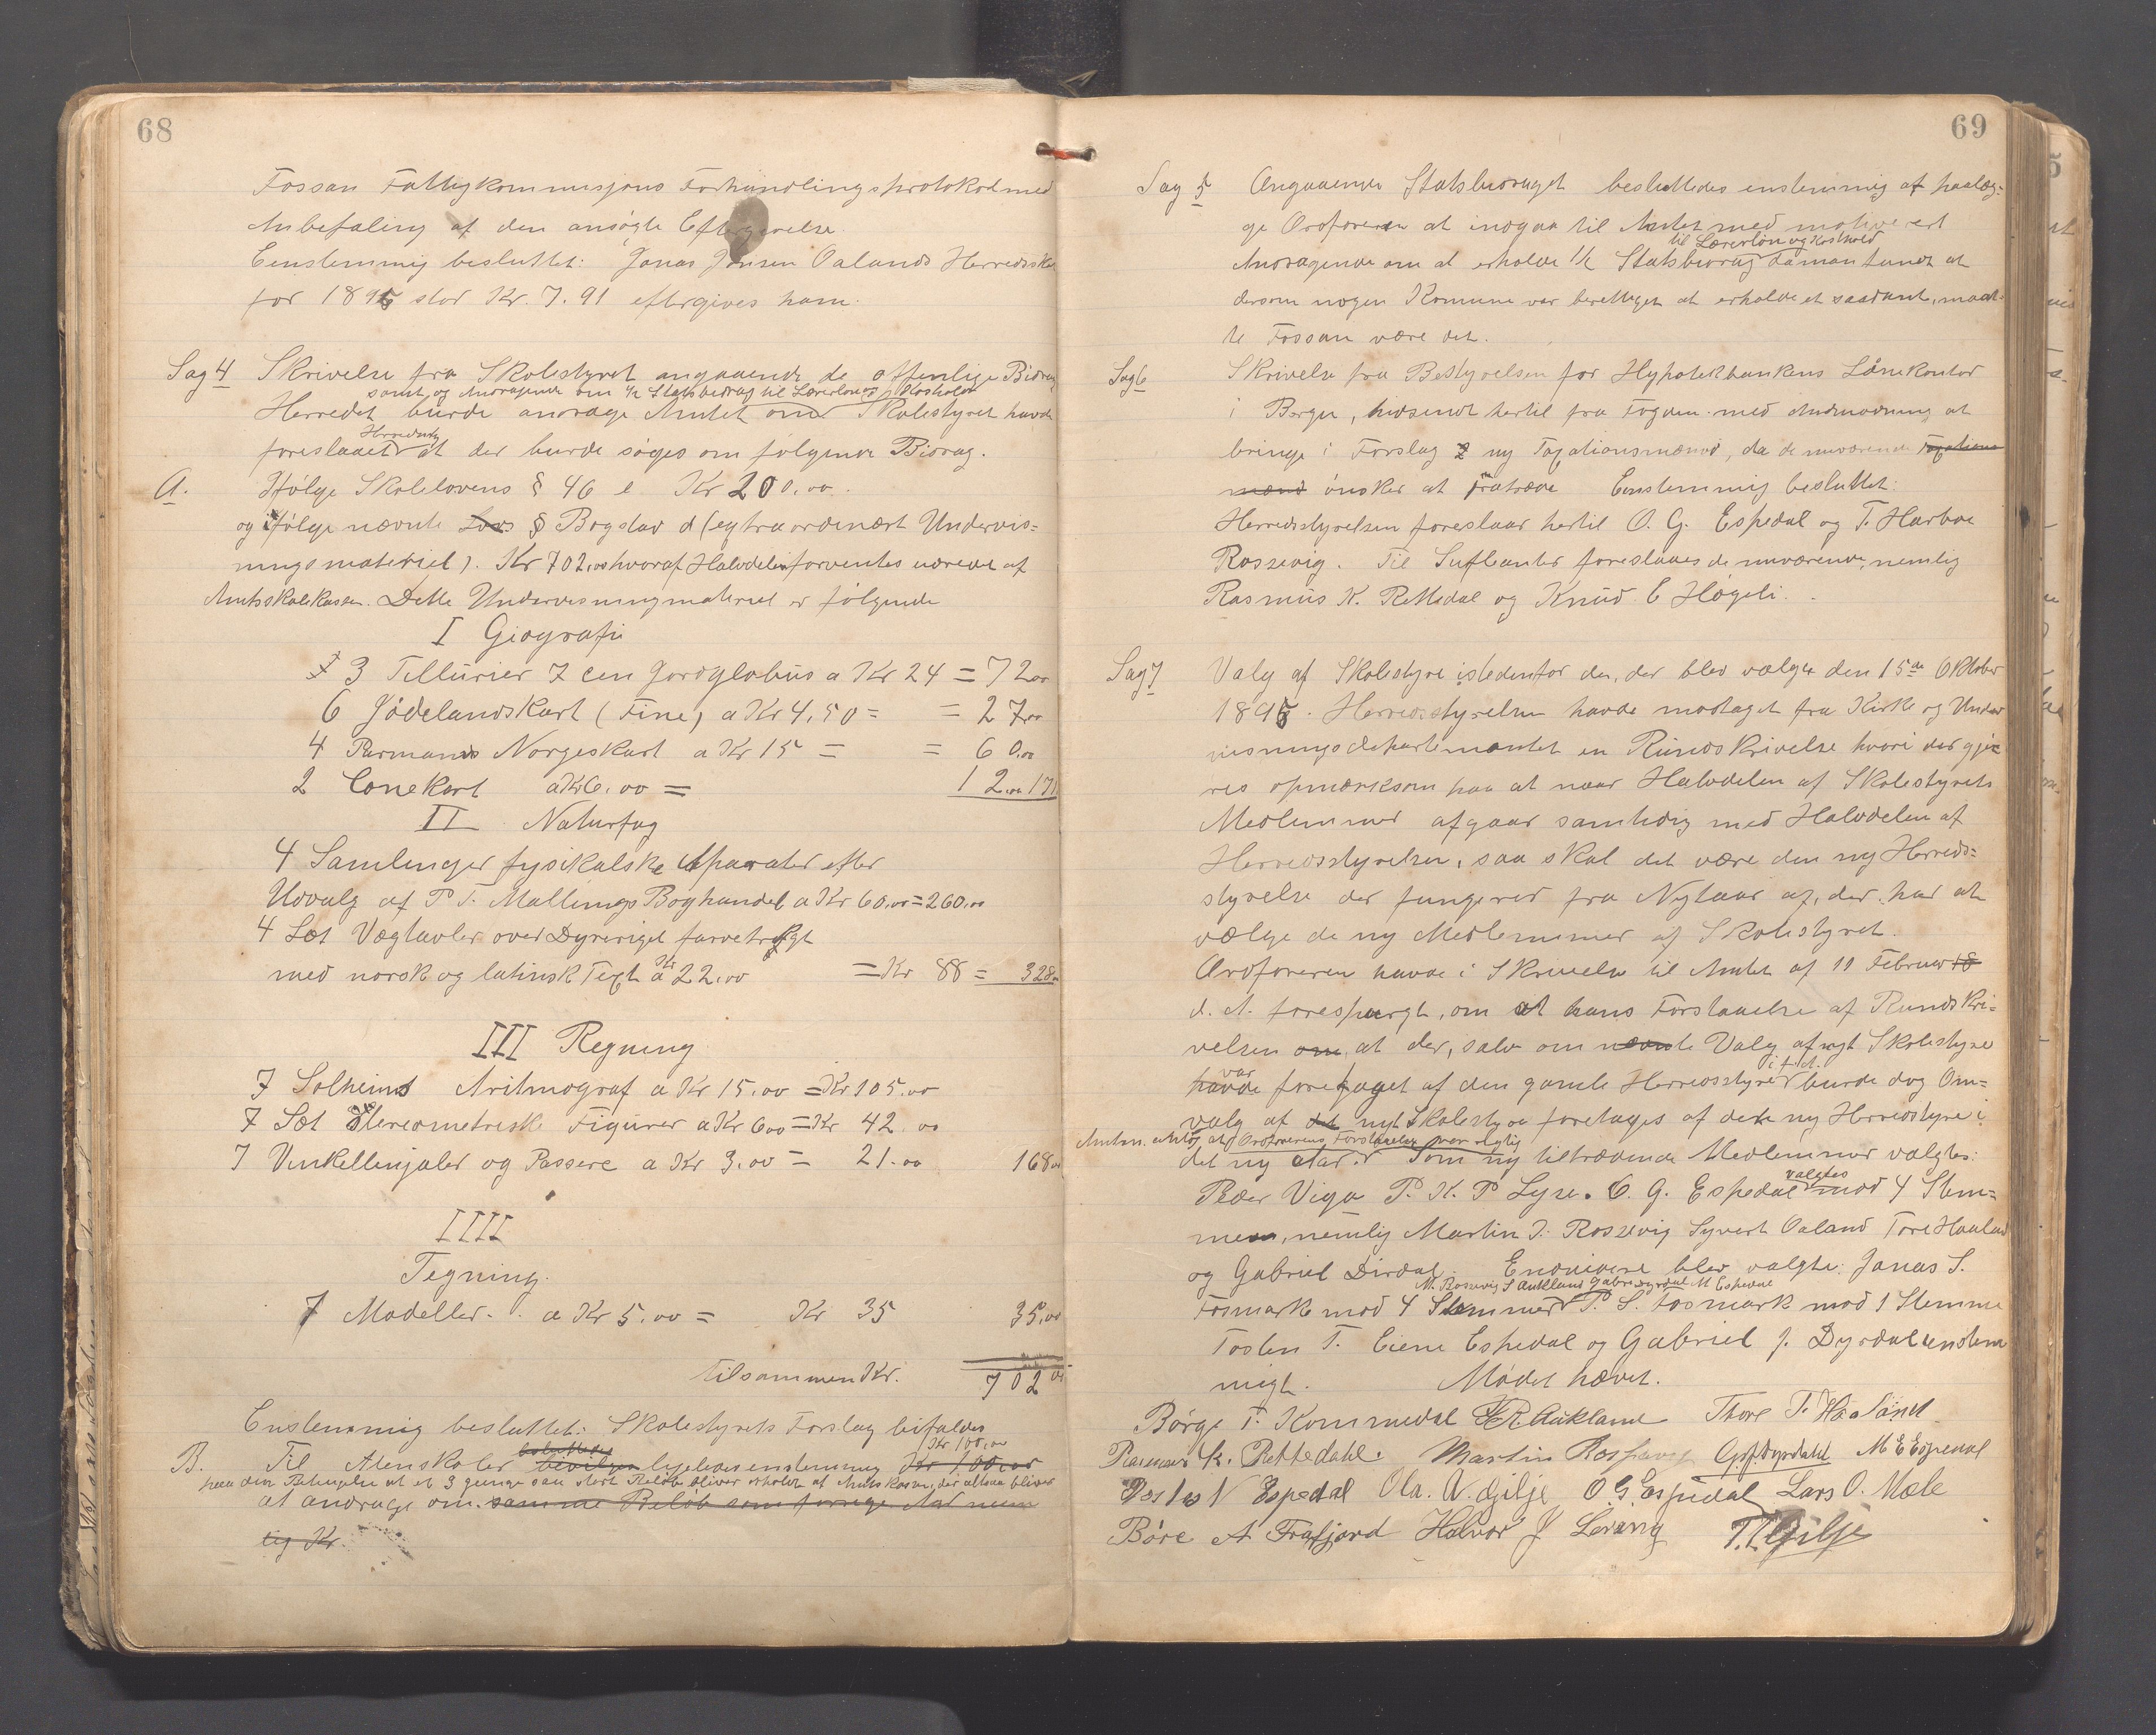 68
Fossan Fattigkommisjons Forhandlingsprotokol med
Anbefaling af den ansøgte Eftergivelse.
Eenstemmig besluttet: Jonas Jonsen Oalands Herredsskat
for 1895 stor Kr. 7.91 eftergives ham.
Sag 4 Skrivelse fra Skolestyret angaaende de offenlige Bidrag
samt og Andragende om 1/2 Statsbidrag til Lærerløn og Kosthold
Herredet burde andrage Amtet om Skolestyret havde
Herredsty
foreslaaet at der burde søges om følgende Bidrag.
A. Ifølge Skolelovens § 46 e Kr 200.00.
og ifølge nævnte Lovs § Bogstav d (extraordinært Undervis=
ningsmateriel). Kr 702,00 hvoraf Halvdelen forventes udredet af
Amtsskolekassen. Dette Undervisningmateriel er følgende
I Giografi
3 Tellurier 7 cen Jordglobus a Kr 24 = 72.00
6 Jødelandskart (Fine) a Kr 4,50 = = 27.00
4 Parmanns Norgeskart a Kr 15 = = 60.00
2 Conekart a Kr 6.00 = 12.00 171
II Naturfag
4 Samlinger fysikalske Aparater efter
Udvalg af P. T. Mallings Boghandel a Kr 60.00 = 260.00
4 Sæt Vægtavler over Dyreriget farvetrygt
med norsk og latinsk Text a Kr 22.00 = Kr 88 = 328.00
III Regning
7 Solheims Aritmograf a Kr 15.00 = Kr 105.00
7 Sæt Stereometriske Figurer a Kr 6.00 = Kr 42.00
7 Vinkellinjaler og Passere a Kr 3.00 = 21.00 168.00
IIII
Tegning.
7 Modeller. a Kr 5.00 = Kr 35 35.00
tilsammen Kr. 702 00
Enstemmig besluttet: Skolestyrets Forslag bifaldes
besluttedes Kr 100,00
B. Til Atenskoler bevilgen ligeledes enstemmig Kr 100.00
paa den Betingelse at et 3 gange saa stort Beløb bliver erholdt af Amtskassen, der altsaa bliver
at andrage om samme Beløb som forrige Aar nem
lig Kr.
69
Sag 5 Angaaende Statsbidraget besluttedes enstemmig at paalæg=
ge Ordføreren at indgaa til Amtet med motiveret
til Lærerløn og Kosthold
Andragende om at erholde 1/2 Statsbidrag da man fandt at
dersom nogen Komune var berettiget at erholde et saadant, maat=
te Fossan være det.
Sag 6 Skrivelse fra Bestyrelsen for Hypotekbankens Lånekontor
i Bergen, hidsendt hertil fra Fogden med Anmodning at
bringe i Forslag 2 ny Taxationsmænd, da de nuværende Taxations
mænd ønsker at fratræde Enstemmig besluttet:
Herredsstyrelsen foreslaar hertil O. G. Espedal og T. Harboe
Rossevig. Til Supleanter foreslaaes de nuværende, nemlig
Rasmus K. Rettedal og Knud E Høgeli.
Sag 7 Valg af Skolestyre istedenfor den, der blev valgt den 15de Oktober
1895. Herredsstyrelsen havde modtaget fra Kirke og Under
visningsdepartementet en Rundskrivelse hvori der gjø
res opmærksom paa at naar Halvdelen af Skolestyrets
Medlemmer afgaar samtidig med Halvdelen af
Herredsstyrelsen, saa skal det være den ny Herreds=
styrelse der fungerer fra Nytaar af, der har at
vælge de ny Medlemmer af Skolestyret.
Ordføreren havde i Skrivelse til Amtet af 11 Februar 18
d. A. forespurgt, om at hans Forstaaelse af Rundskri=
velsen om at der, selv om nævnte Valg af nyt Skolestyre
var i fjd.
havde foretaget af den gamle Herredsstyre burde dog Om=
valg af det nyt Skolestyre foretages af dette ny Herredstyre i
Amtm. at Ordførerens Forstaaelse var rigtig
det ny Aar. Som ny tiltrædende Medlemmer valgtes:
Peder Viga P. K. P Lyse. O. G. Espedal valgtes mod 4 Stem=
mer, nemlig Martin T. Rossevig Syvert Oaland Tore Haaland
og Gabriel Dirdal. Endvidere blev valgte: Jonas S.
M. Rossevig S Aukland Gabr. Dyrdal M Espedal
Fosmark mod 4 Stemmer P. S. Fosmark mod 1 Stemme
Tosten T. Eiene Espedal og Gabriel J. Dyrdal enstem
migt. Mødet hævet.
Børge T. Kommedal S R. Aukland Thore T. Haaland
Rasmus K. Rettedahl. Martin Rossavig G J Dyrdahl M E Espedal
Tosten Espedal Ola. A. Gilje O. G. Espedal Lars O. Mæle
Børe A Frafjord Halvor J Levang T. T. Gilje